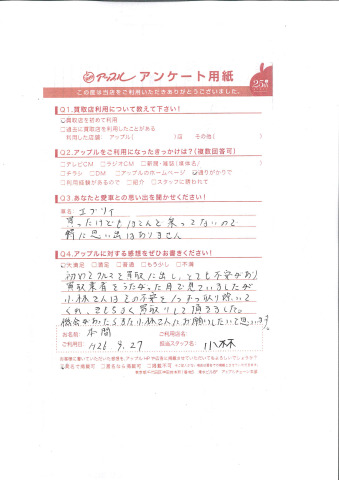 アップル アンケート用紙
25周年
この度は当店をご利用いただきありがとうございました。
Q1.買取店利用について教えて下さい!
☑買取店を初めて利用
□過去に買取店を利用したことがある
利用した店舗: アップル( )店 その他( )
Q2.アップルをご利用になったきっかけは?(複数回答可)
□テレビCM □ラジオCM □新聞・雑誌(媒体名/ )
□チラシ □DM □アップルのホームページ ☑通りがかりで
□利用経験があるので □紹介 □スタッフに誘われて
Q3.あなたと愛車との思い出を聞かせください!
車名: エブリイ
買ったけどもほとんど乗ってないので
特に思い出はありません
Q4.アップルに対する感想をぜひお書きください!
☑大満足 □満足 □普通 □もう少し □不満
初めてクルマを買取に出し、とても不安があり
買取業者をうたがった目で見ていましたが
小林さんはその不安をしっかり取り除いて
くれ、きもちよく買取りして頂きました。
機会があったらまた小林さんにお願いしたいと思います。
お名前: 本間 ご利用店名:
ご利用日: H26 9.27 担当スタッフ名: 小林
お客様に書いていただいた感想を、アップルHPや広告に掲載させていただいてもよろしいでしょうか?
☑実名で掲載可 □匿名なら掲載可 □掲載不可